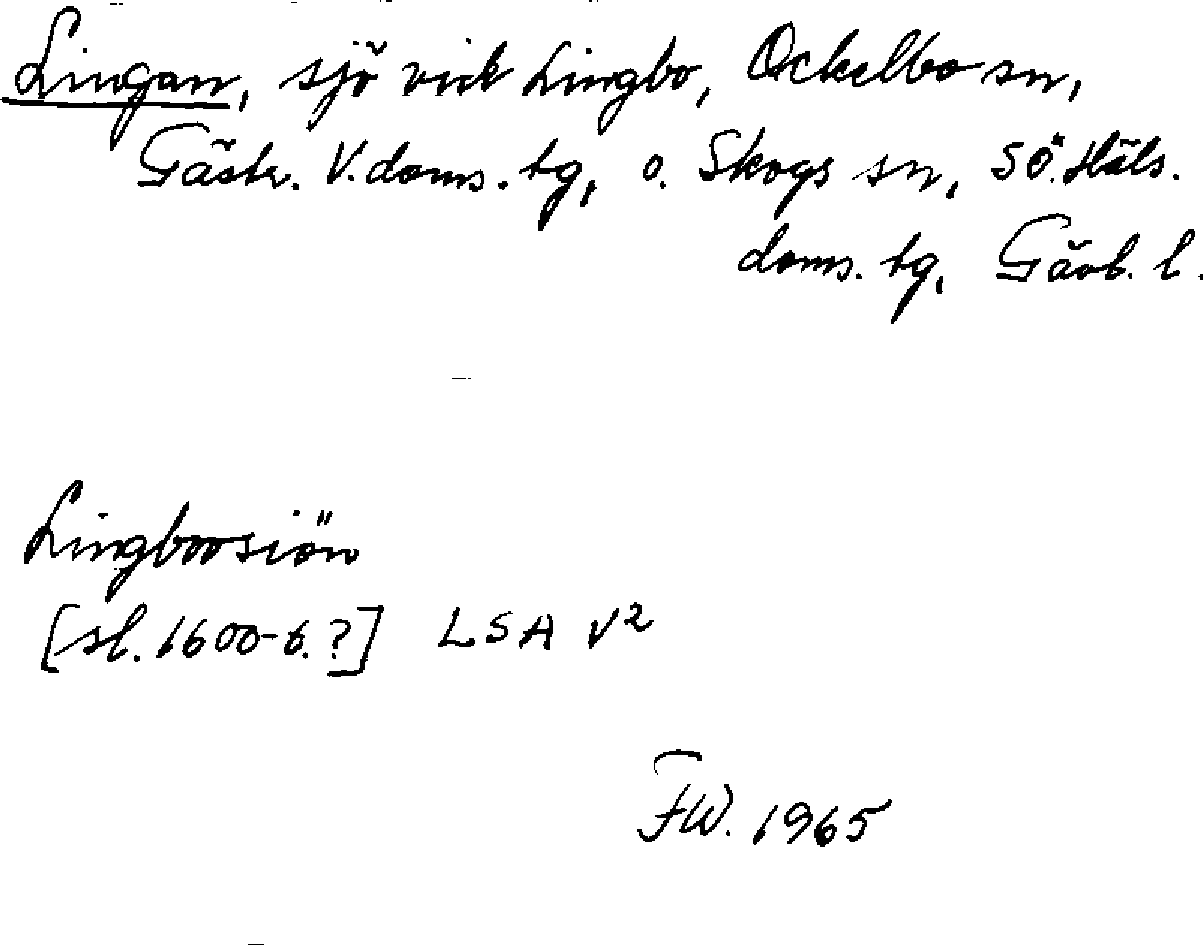 Lingan, sjö vid Lingbo, Ockelbo sn,
Gästr. V. doms. tg, o. Skogs sn, SÖ. Häls.
doms. tg, Gävl. l.
Lingboosiön
[sl. 1600-t.?] LSA V²
FW. 1965